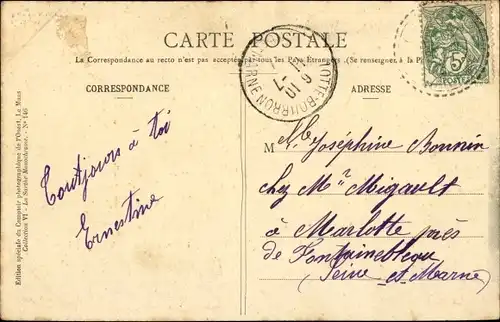 CARTE POSTALE
La Correspondance au recto n'est pas acceptée par tous les Pays Étrangers. (Se renseigner à la P
CORRESPONDANCE
ADRESSE
Toutjours à toi
Ernestine
M lle Joséphine Bonnin
chez Mr Migault
à Marlotte près
de Fontainebleau
(Seine et Marne)
Edition spéciale du Comptoir photographique de l'Ouest, Le Mans
Collection VI - La Sarthe Monumentale. - N° 146
5c
POSTES